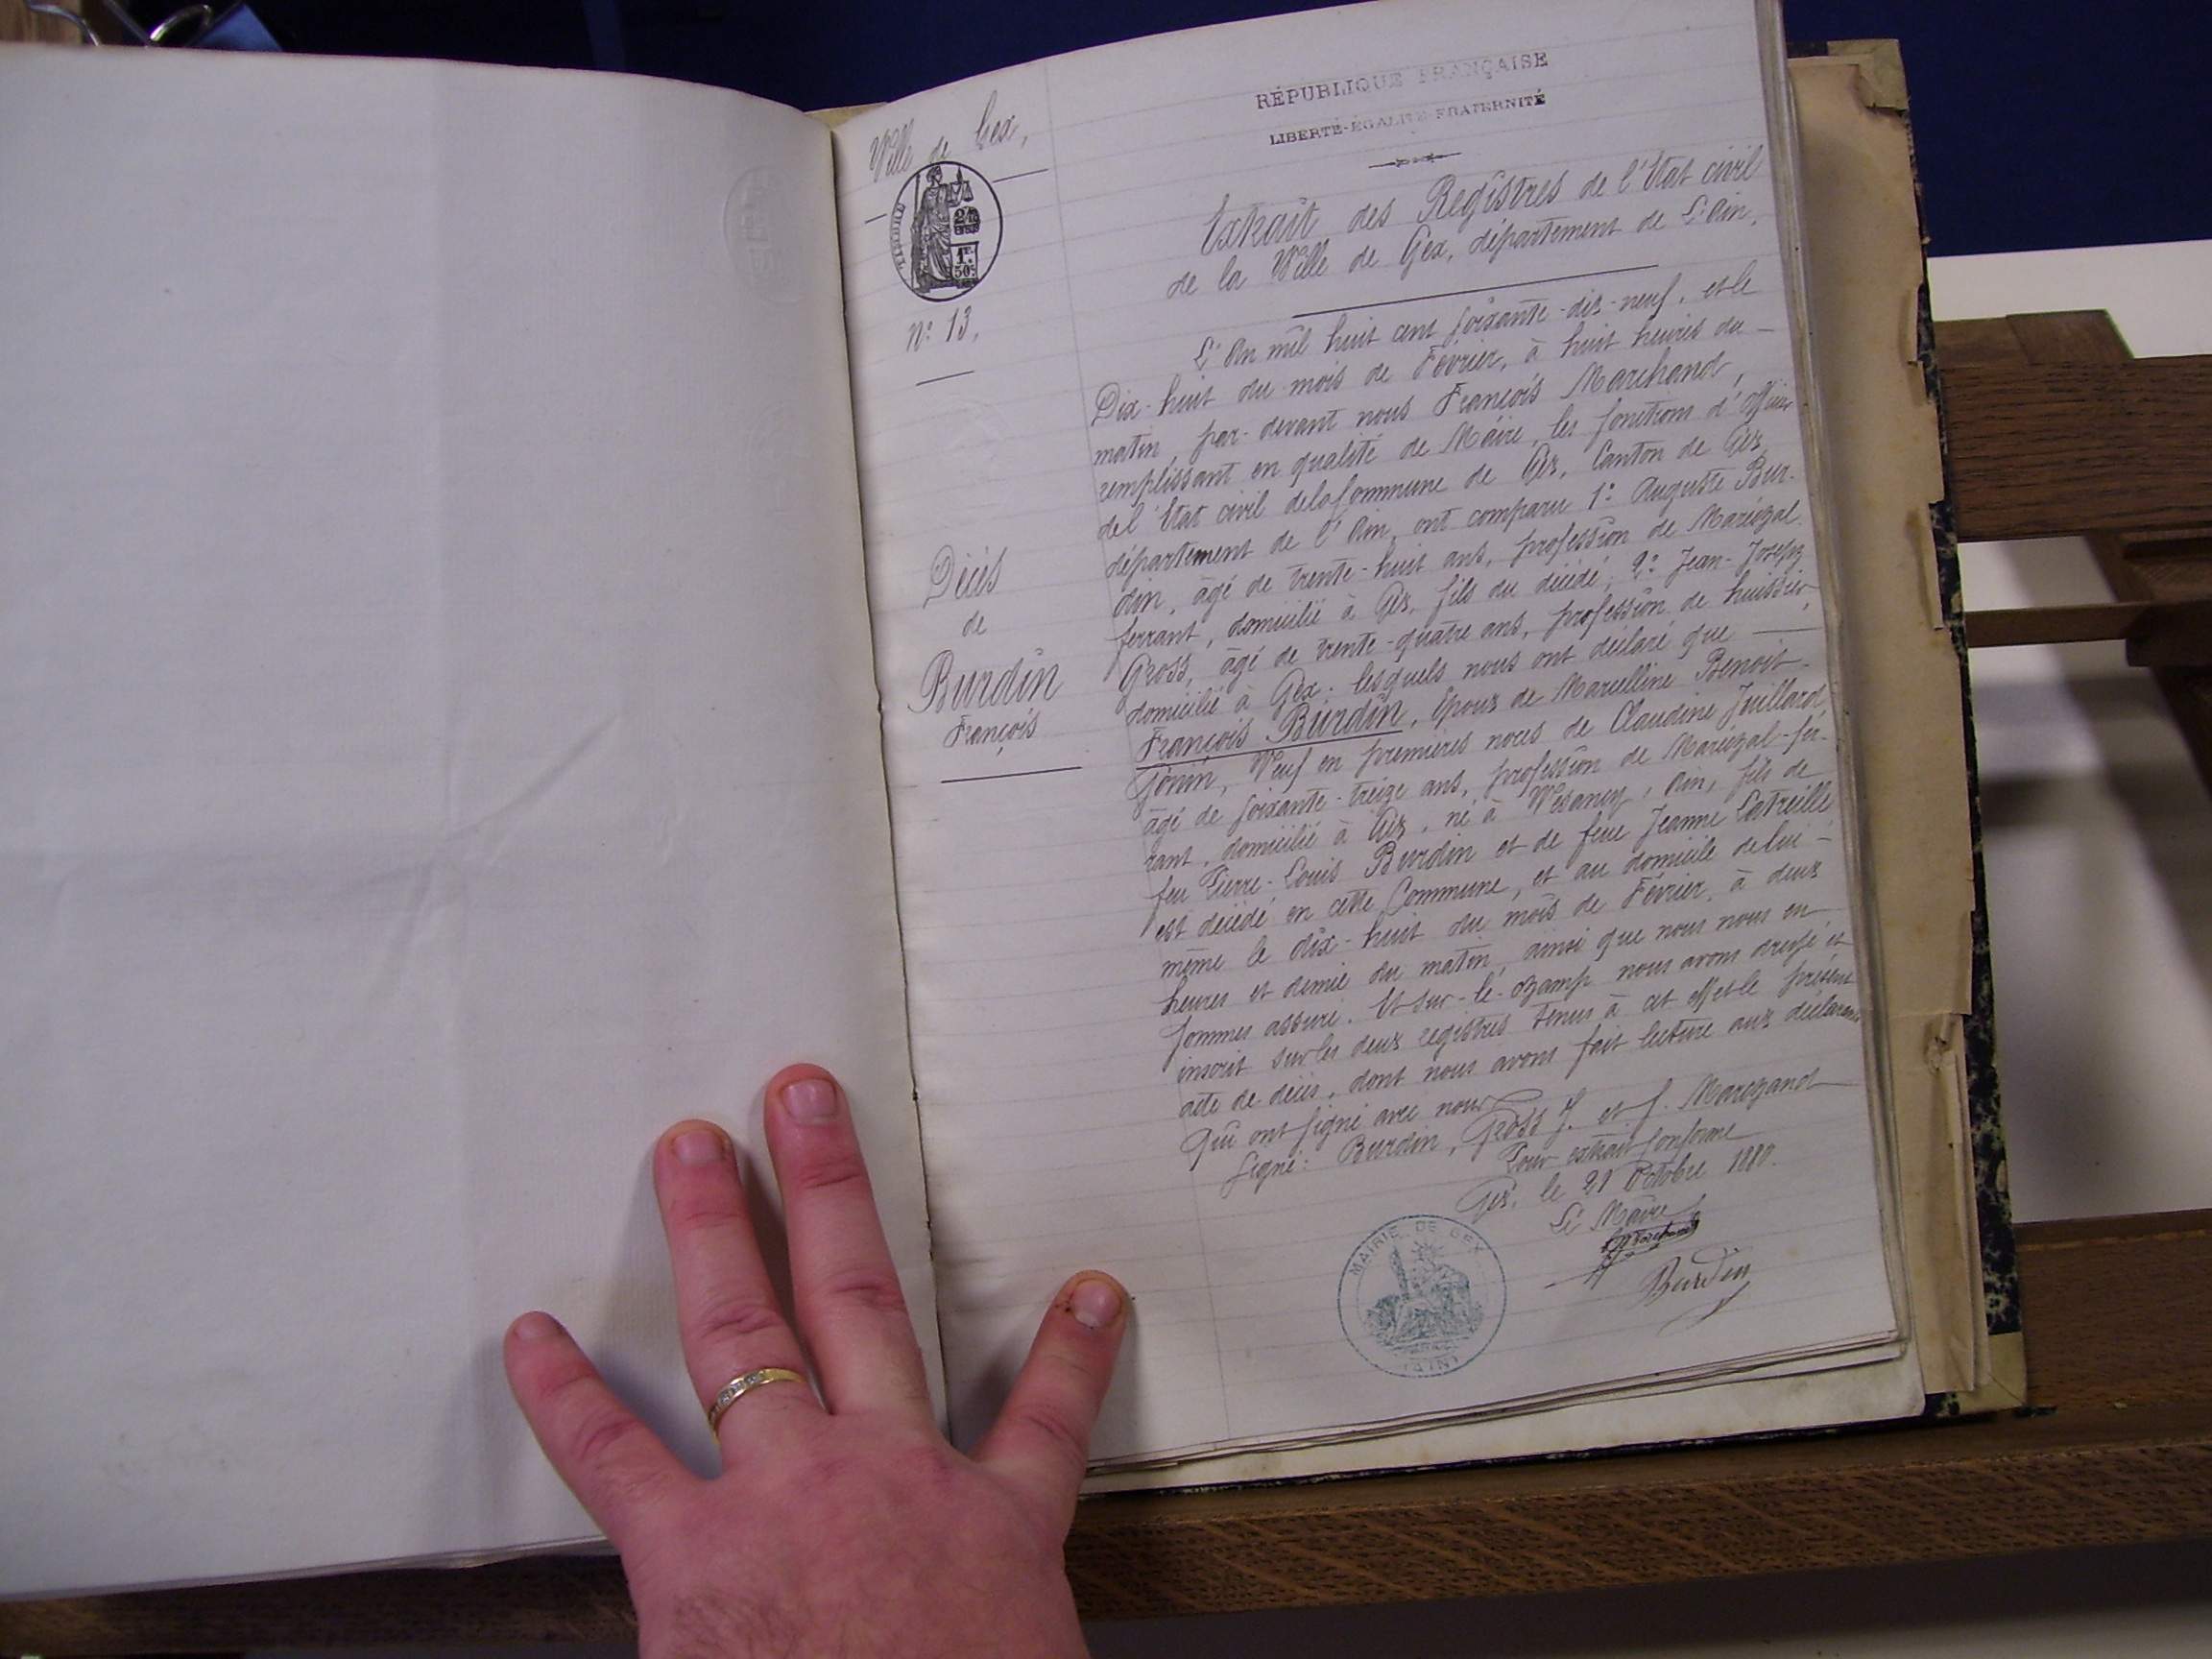 Ville de Gex,
TIMBRE
2/10
EN SUS
1F.
50c
N° 13.
Décès
de
Burdin
François
RÉPUBLIQUE FRANÇAISE
LIBERTÉ-ÉGALITÉ-FRATERNITÉ
Extrait des Registres de l'Etat civil
de la Ville de Gex, département de L'Ain.
L'An mil huit cent soixante-dix-neuf, et le
Dix-huit du mois de Février, à huit heures du
matin, par-devant nous François Marchand,
remplissant en qualité de Maire, les fonctions d'officier
de l'Etat civil de la Commune de Gex, Canton de Gex,
département de l'Ain, ont comparu 1° Auguste Bur-
din, âgé de trente-huit ans, profession de Maréchal
ferrant, domicilié à Gex, fils du décédé; 2° Jean-Joseph
Gross, âgé de trente-quatre ans, profession de huissier,
domicilié à Gex; lesquels nous ont déclaré que
François Burdin, époux de Marcelline Benoit-
Gonin, Veuf en premières noces de Claudine Juillard,
âgé de soixante-treize ans, profession de Maréchal-fer-
rant, domicilié à Gex, né à Vesancy, Ain, fils de
feu Pierre-Louis Burdin et de feue Jeanne Latreille
est décédé en cette Commune, et au domicile de lui-
même le dix-huit du mois de Février, à deux
heures et demie du matin, ainsi que nous nous en
sommes assuré. Et sur-le-champ nous avons dressé et
inscrit sur les deux registres tenus à cet effet le présent
acte de décès, dont nous avons fait lecture aux déclarants
Qui ont signé avec nous
Signé: Burdin, Gross J. et f. Marchand
Pour extrait conforme
Gex, le 21 Octobre 1880.
Le Maire
Marchand
Burdin
MAIRIE DE GEX
(AIN)